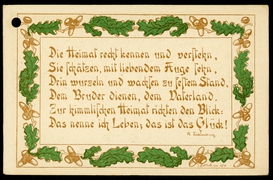 Die Heimat recht kennen und verstehn,
Sie schätzen, mit liebendem Auge sehn,
Drin wurzeln und wachsen zu festem Stand,
Dem Bruder dienen, dem Vaterland,
Zur himmlischen Heimat richten den Blick:
Das nenne ich Leben, das ist das Glück!